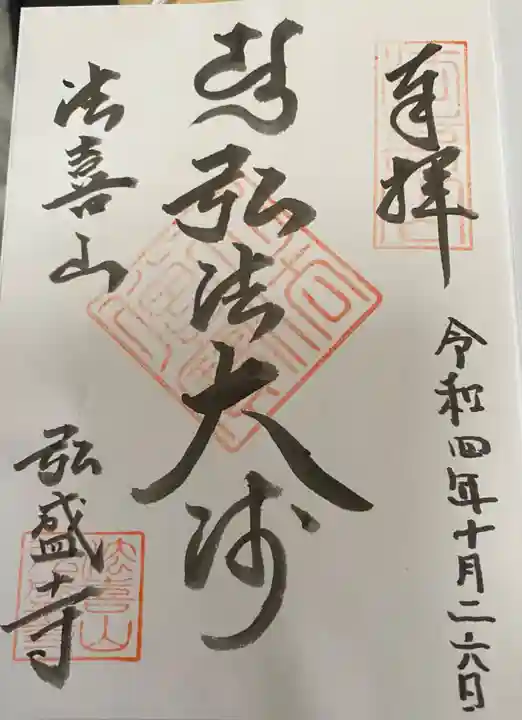 奉拝
令和四年十月二六日
弘法大師
法喜山
弘盛寺
法喜山